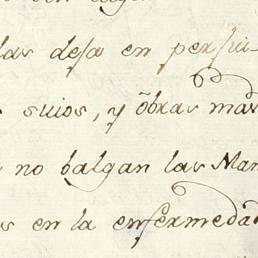 las desa en persui-
suios, y õbras mas
no balgan las Man
en la enfermedad